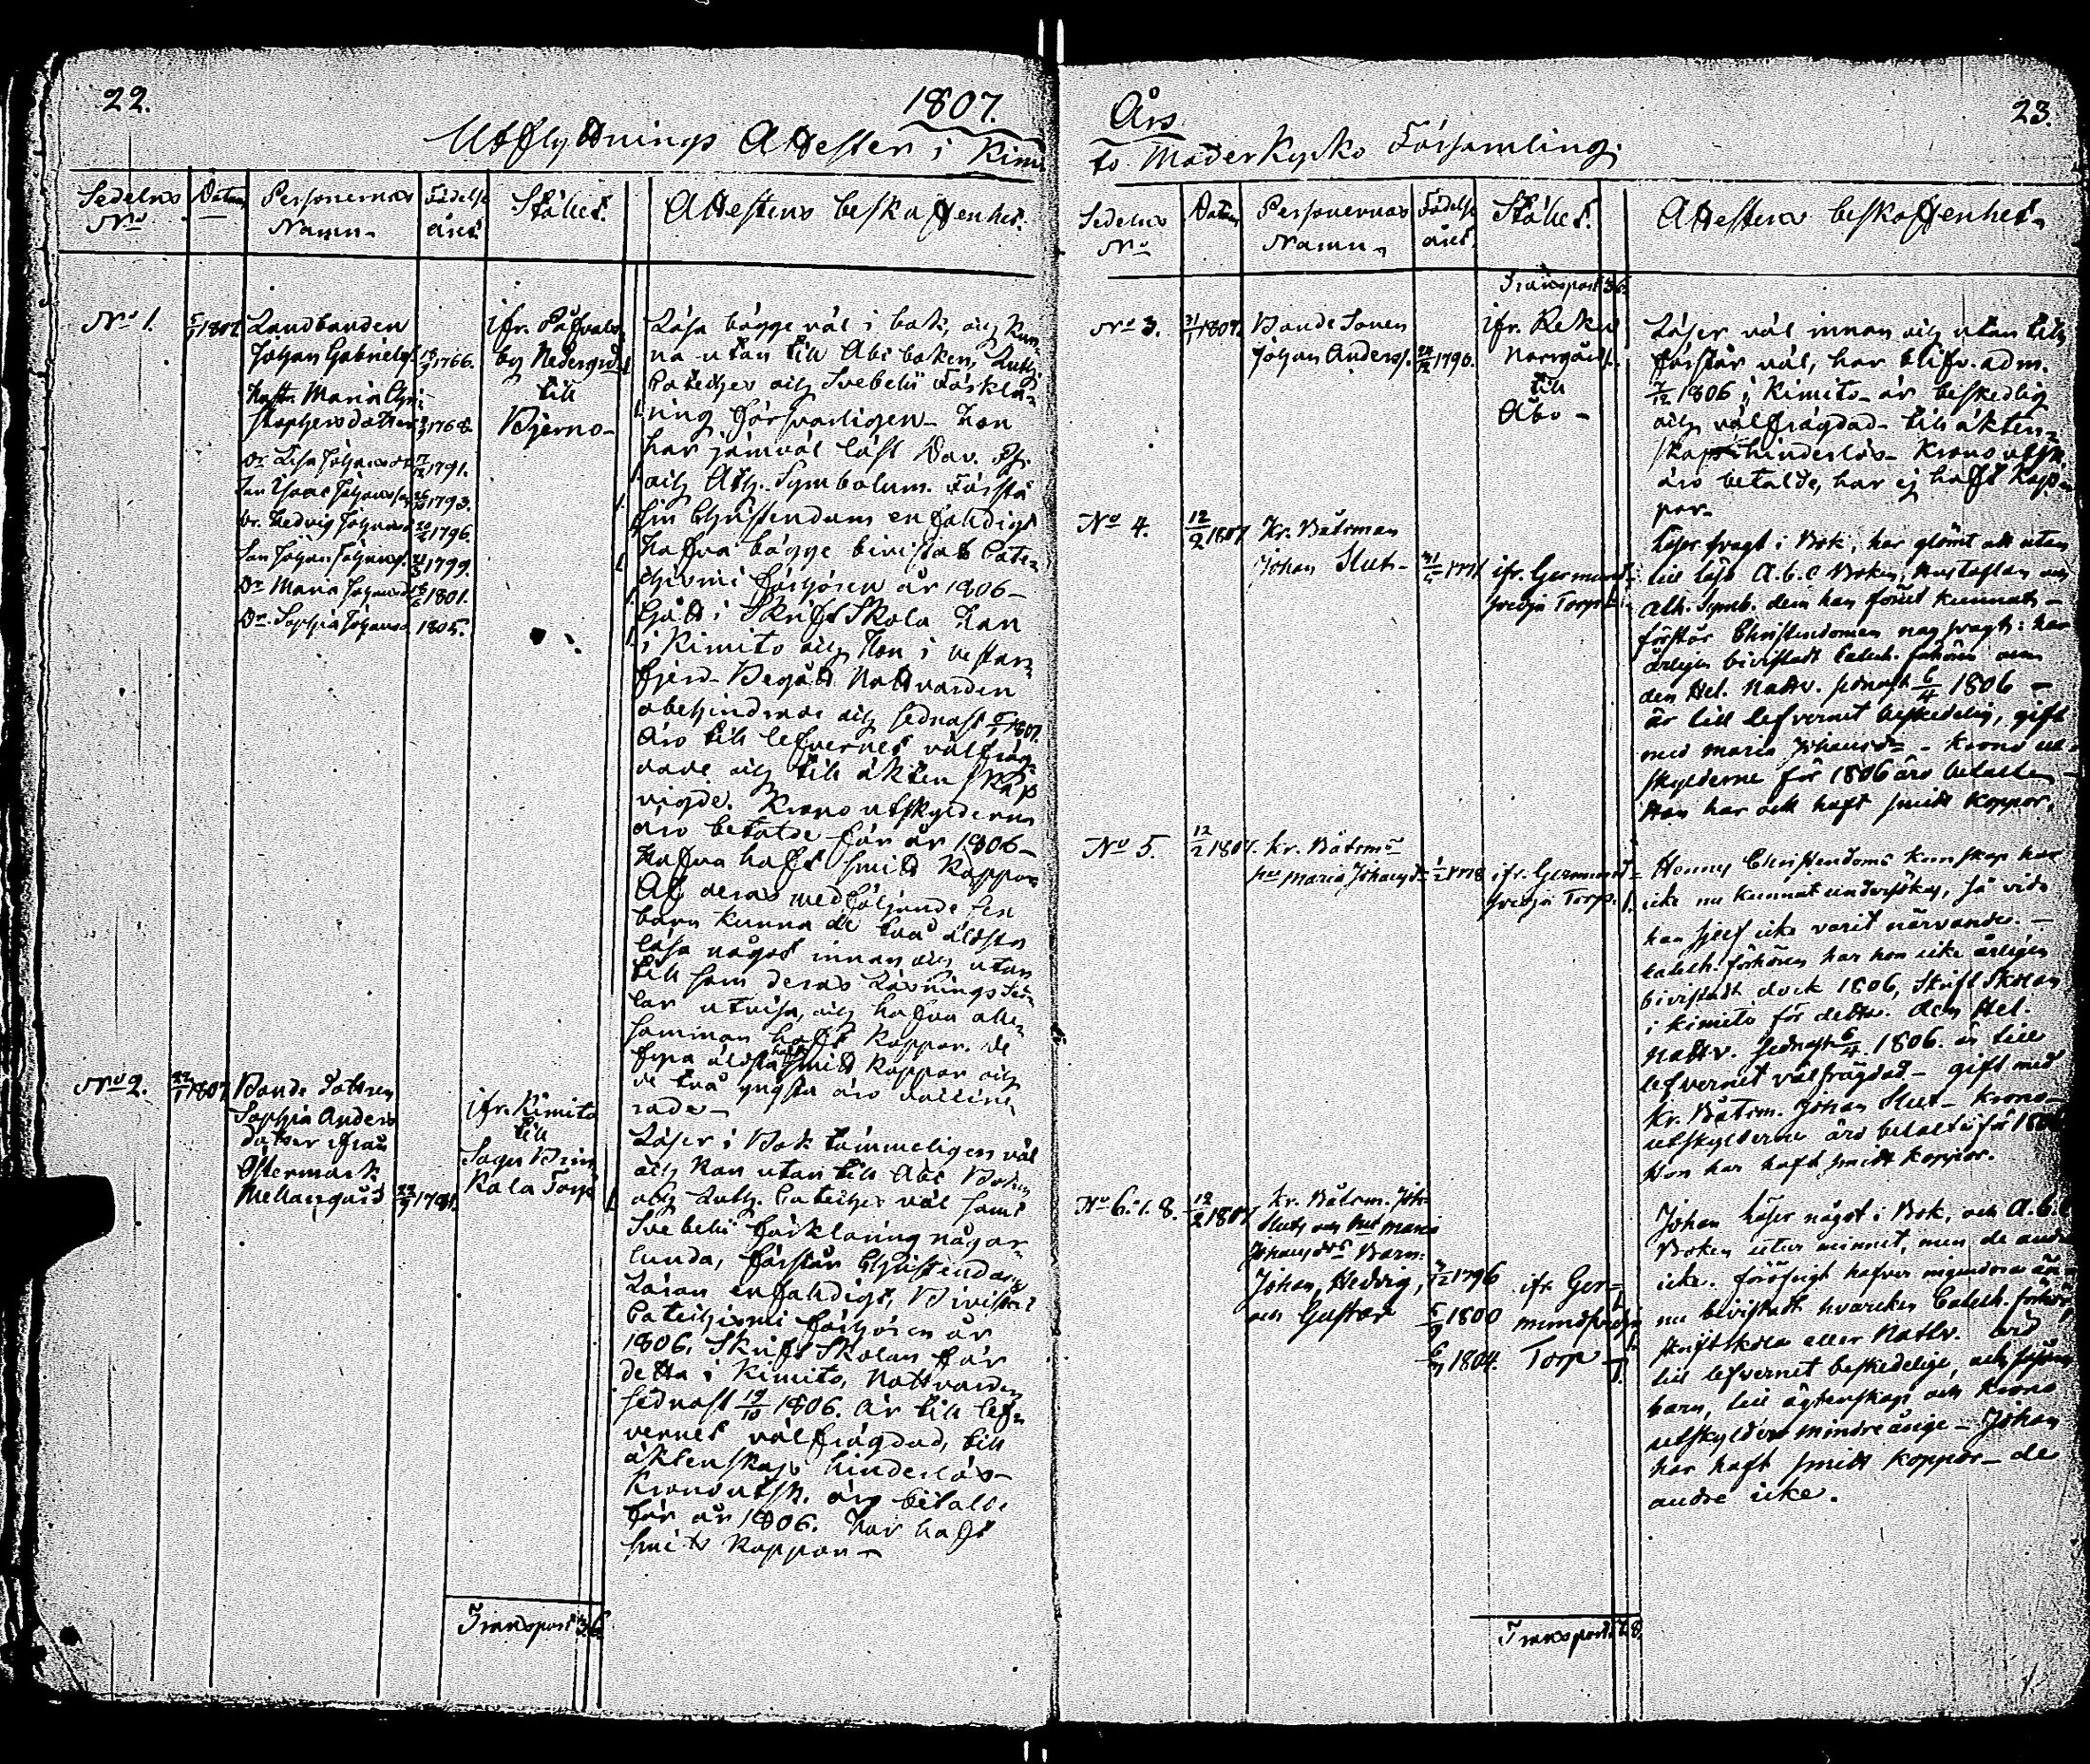 22.
1807.
Utflyttnings Attester i Kimi
Sedelns No
Datum
Personernas Namn
Födelse året
Stället.
Attestens beskaffenhet.
No 1.
1807.
Landbonden
Johan Gabriels.
1766.
Hustr. Maria Chri-
stophersdotter
1768.
Dr. Lisa Johansdr
1791.
Son Isaac Johansson
1793.
Dr. Hedvig Johansd.
1796.
Son Johan Johans.
1799.
Dr Maria Johansd.
1801.
Dr. Sophia Johansd.
1805.
ifr.
by Nedergrd
till
Bjerno
Läsa bägge väl i bok, och kun-
na utan till Abc boken, Luth.
Cateches och Svebelii Förkla-
ring försvarligen. Hon
har jämväl läst Dav. Ps.
och Ath. Symbolum. Förstå
sin Christendom enfaldigt
Hafva bägge bivistat Cate-
chismi förhören år 1806 -
Gått i Skrift Skola Han
i Kimito och Hon i Vestan-
fjerd - Begått Nattvarden
obehindrade och sednast 1807.
äro till lefvernet välfräg-
dade och till äktenskap
vigde. Krono utskylderne
äro betalde för år 1806 -
Hafva haft smitt Koppor
Af deras medföljande sex
barn kunna de två äldsta
läsa något innan och utan
till som deras Läsnings Sed-
lar utvisa, och hafva alle-
samman haft Koppor. de
fyra äldsta haft smitt Koppor och
de två yngsta äro vaccine-
rade -
No 2.
1807
Bonde Dottren
Sophia Anders
dotter ifrån
Östermark
Mellangård
ifr. Kimito
till
Sagu
Kala Torp
Läser i Bok tämmeligen väl
och kan utan till Abc Boken
och Luth. Cateches väl samt
Svebelii förklaring någor-
lunda, förstår Christendoms
Läran enfaldigt, Bivistat
Catechismi förhören år
1806, Skrift Skolan för
detta i Kimito, Nattvarden
sednast 19/10 1806. är till lef-
vernet välfrägdad, till
äktenskap hinderlös -
Kronoutsk. äro betalde
för år 1806. Har haft
smitt Koppor -
Transport 36
Års
23.
to Moderkyrko Församling.
Sedelns No
Datum
Personernas Namn
Födelse året.
Stället.
Attestens beskaffenhet
Transport 36.
No 3.
1807.
Bonde Sonen
Johan Anderss.
1790.
ifr. Reku
Norrgård
till
Åbo -
Läser väl innan och utan till
förstår väl, har blifv. adm.
1806 i Kimito - är beskedlig
och välfrägdad - till äkten-
skap hinderlös - Krono utsk.
äro betalde, har ej haft Kop-
por -
No 4.
12/2 1807
Kr. Båtsman
Johan Slut -
ifr. Germund-
svedja Torp
Läser svagt i Bok, har glömt att utan
till läsa A.b.c Boken, Hustaflan och
Ath. Symb. dem han förut kunnat -
förstår Christendomen nog svagt: har
årligen bivistadt Catech. förhören och
den Hel. Nattv. sednast 6/4 1806 -
är till lefvernet beskedelig, gift
med Maria Johansdr - Krono ut-
skylderne för 1806 äro betalte -
Han har och haft smitt Koppor.
No 5.
12/2 1807.
Kr. Båtsms
hu Maria Johansdr
1778
ifr. Germund-
svedja Torp.
Hennes Christendoms kunskap har
icke nu kunnat undersökas, så vida
hon sjelf icke varit närvarande. -
Catech. förhören har hon icke årligen
bivistadt dock 1806, Skrift Skolan
i Kimito för detta. Den Hel.
Nattv. sednast 6/4. 1806. är till
lefvernet välfrägdad - gift med
Kr. Båtsm. Johan Slut - Krono-
utskylderne äro betalte för
Hon har haft smitt koppor.
No 6. 7. 8.
12/2 1807
Kr. Båtsm. Joh.
Sluts och Hu Maria
Johansdrs Barn:
Johan, Hedvig,
och Gustav
1796
1800
1804.
ifr. Ger-
mundsvedja
Torp
Johan läser något i Bok, och A.b.c
Boken utur minnet, men de andra
icke. föröfrigt hafver ingendera än-
nu bivistadt hvarcken Catech. förhör,
skriftskola eller Nattv. äro
till lefvernet beskedelige, och såsom
barn, till ägtenskap och Krono
utskylder minderårige - Johan
har haft smitt koppor - de
andre icke.
Transport 78